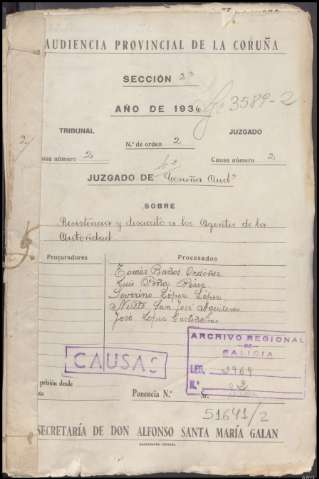 AUDIENCIA PROVINCIAL DE LA CORUÑA
SECCIÓN 2ª
AÑO DE 1936
3589-2
TRIBUNAL
JUZGADO
N.º de orden 2
ausa número 2
Causa número 2
JUZGADO DE Coruña
SOBRE
Resistencia y desacato a los Agentes de la
Autoridad.
Procuradores
Procesados
Tomás Baños Ordóñez
Luis Peña Pérez
Severino López López
San José
José López
CAUSAS
ARCHIVO REGIONAL
DE
GALICIA
LEG. 2969
N.º 22
Ponencia N.º
51641/2
SECRETARÍA DE DON ALFONSO SANTA MARÍA GALAN